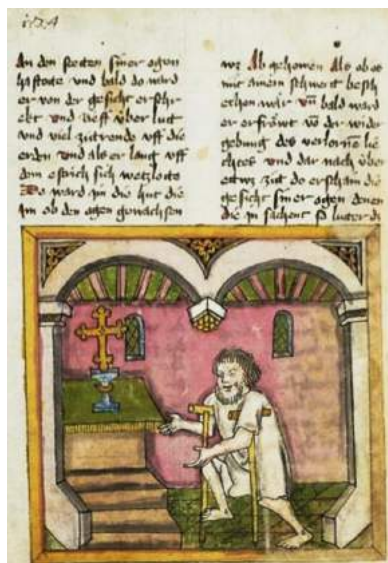 An den serten siner ogen
haftote vnd bald do ward
er von der gesicht erschr
ekt vnd rieff über lut
vnd viel zittrende vff die
erden vnd als er lang vff
dem estrich sich wetzlote
Do ward im die hut die
im ob den ogen gewachsen
wz Ab genomen Als ob es
mit ainem schwert besch
echen wär vn bald ward
er erfröwt vo der wider
gebung des verlornen lie
chtes vnd dar nach über
etwz zit do erschain die
gesicht siner ogen denen
die in sachent so luter dz